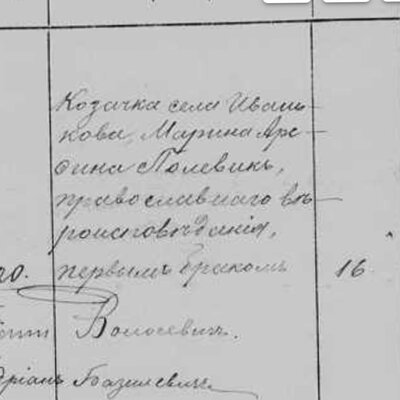 Козачка села Ивань-
кова, Марина Арс-
ѣина Полевикъ,
православнаго вѣ-
роисповѣданія,
первымъ бракомъ 16
Волосевичъ.
Базилевичъ